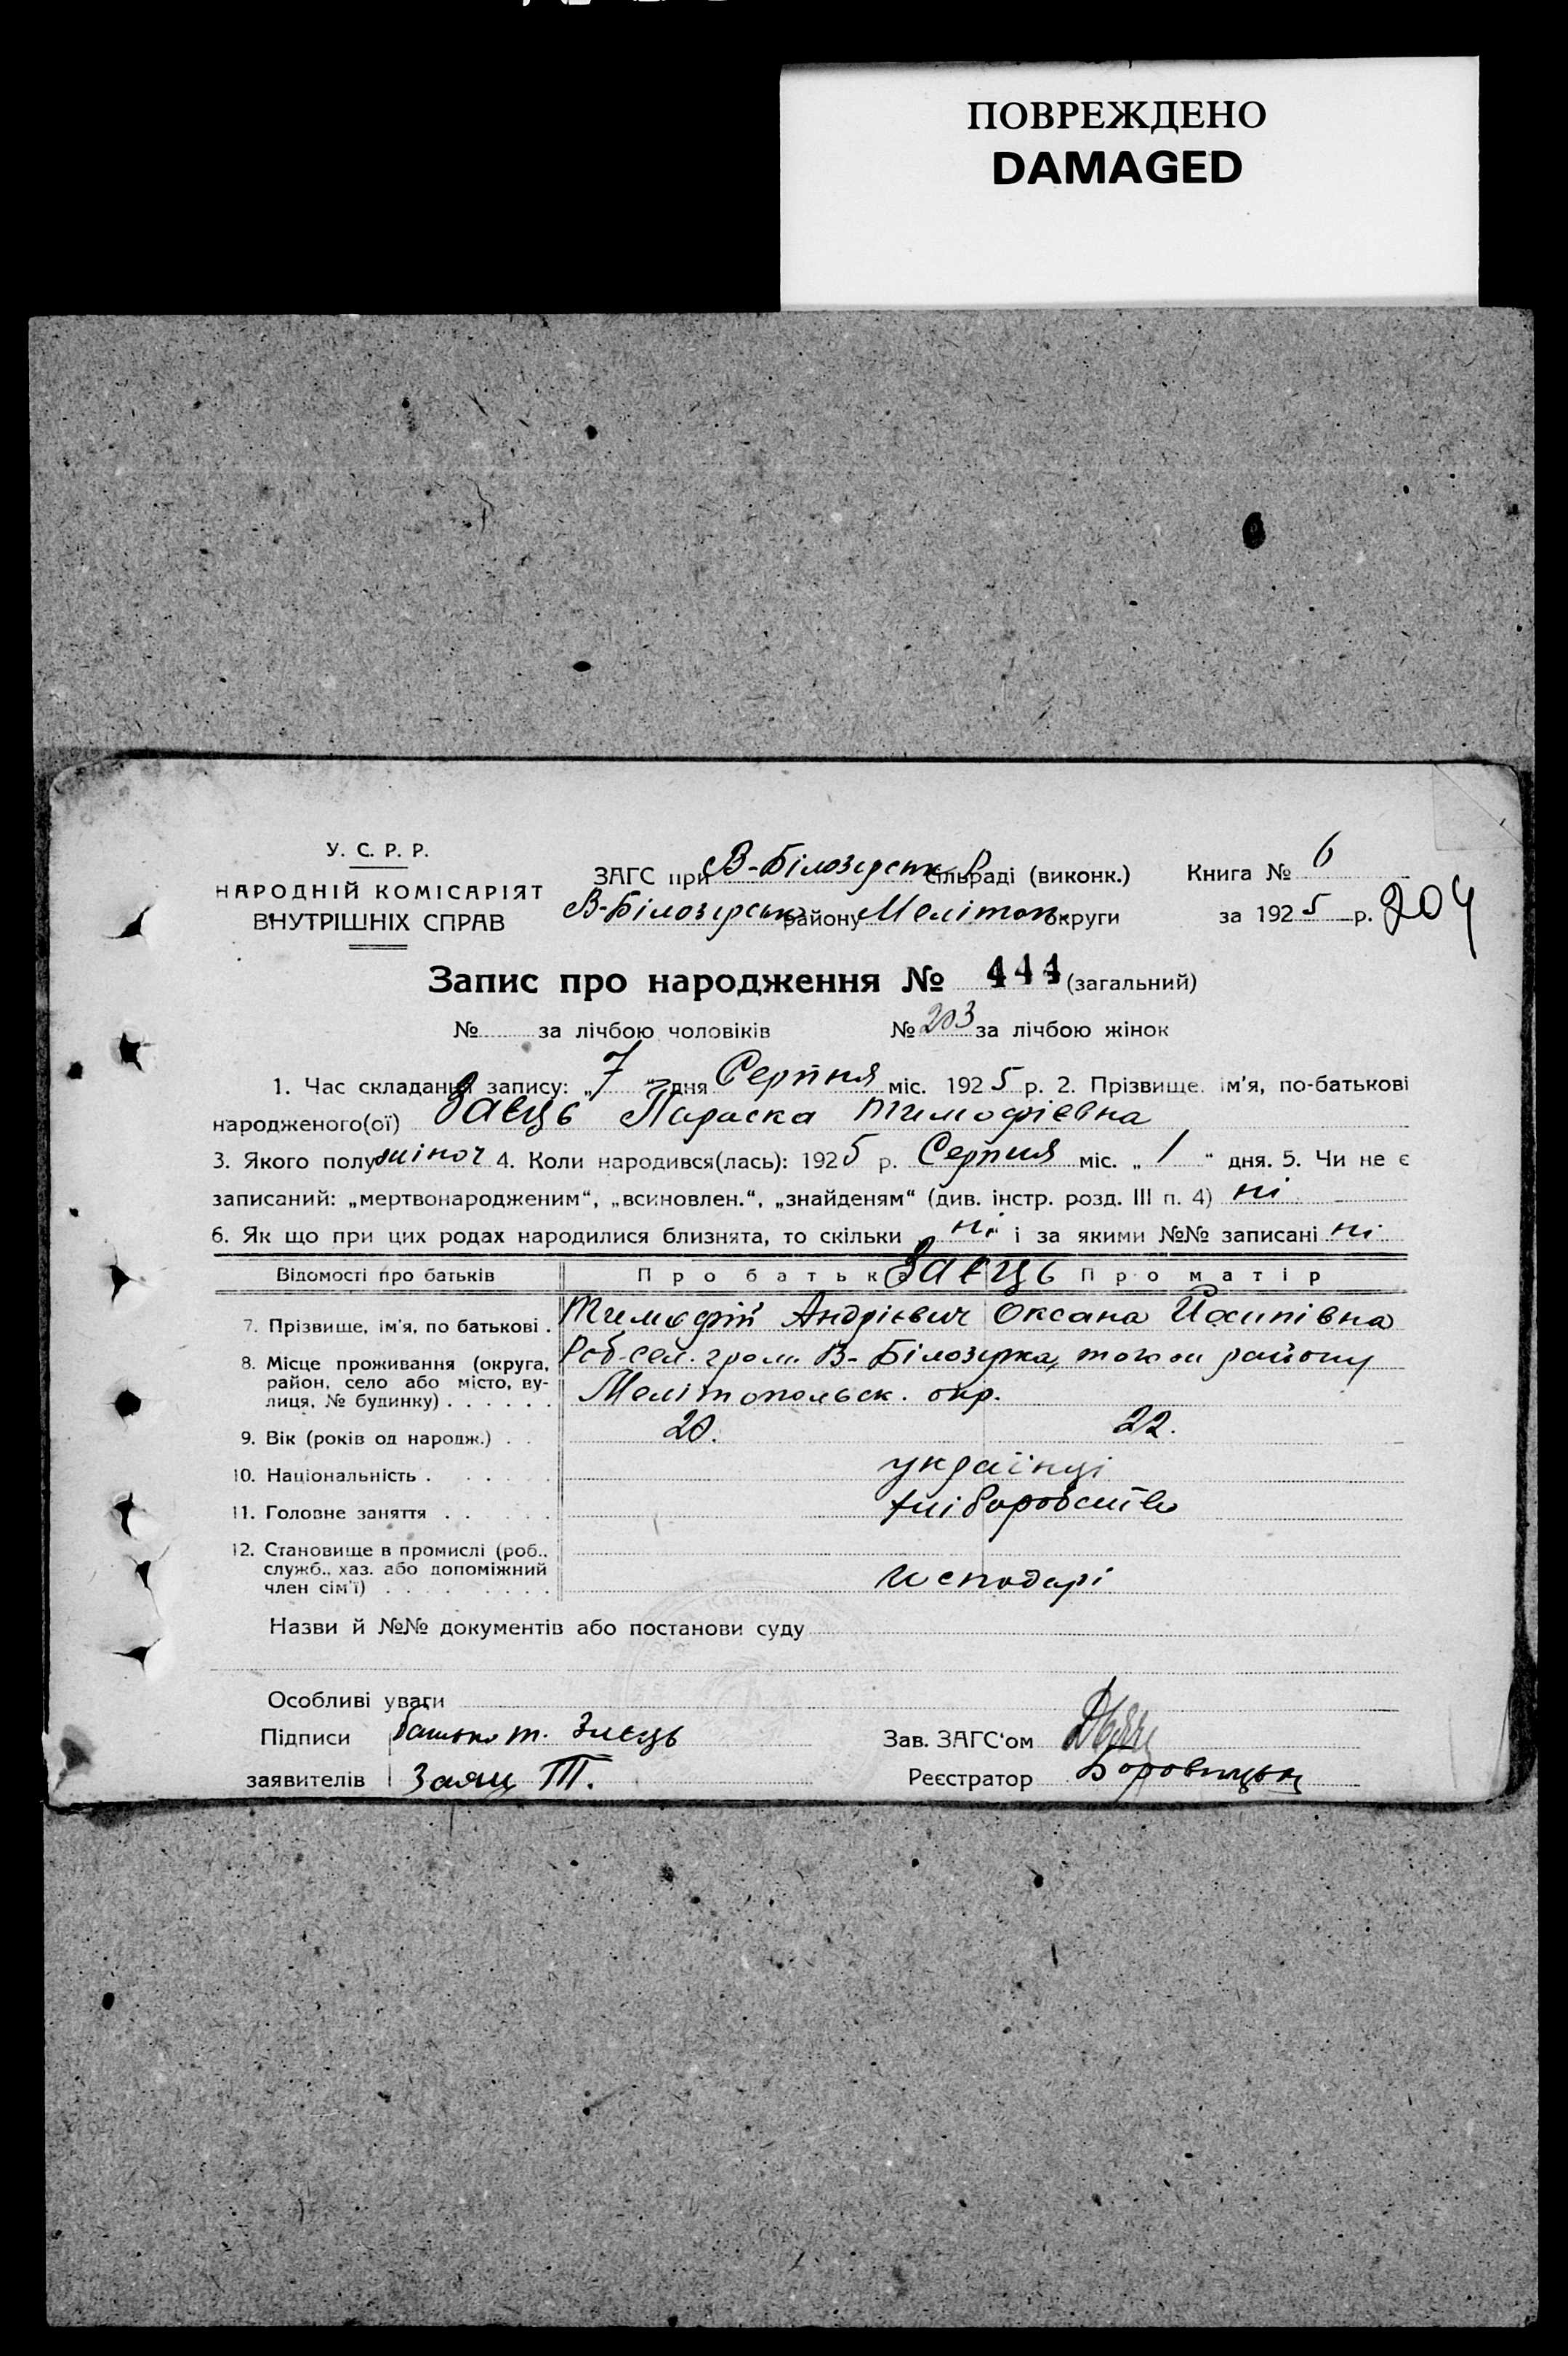 ПОВРЕЖДЕНО
DAMAGED
У. С. Р. Р.
НАРОДНІЙ КОМІСАРІЯТ
ВНУТРІШНІХ СПРАВ
ЗАГС при В-Білозерськ сільраді (виконк.) Книга № 6
В-Білозерськ району Мелітоп. округи за 1925 р. 204
Запис про народження № 444 (загальний)
№ за лічбою чоловіків № 203 за лічбою жінок
1. Час складання запису: „7“ дня Серпня міс. 1925 р. 2. Прізвище, ім'я, по-батькові
народженого(ої) Заєць Параска Тимофієвна
3. Якого полу жіноч 4. Коли народився(лась): 1925 р. Серпня міс. „1“ дня. 5. Чи не є
записаний: „мертвонародженим“, „всиновлен.“, „знайденям“ (див. інстр. розд. III п. 4) ні
6. Як що при цих родах народилися близнята, то скільки „ні“ і за якими №№ записані ні
Відомості про батьків Про батьк Заєць Про матір
7. Прізвище, ім'я, по батькові . Тимофій Андрієвич Оксана Йосипівна
8. Місце проживання (округа, Роб-сел. гром. В-Білозірка, того ж району
район, село або місто, ву-
лиця, № будинку) . . . . . . Мелітопольск. окр.
9. Вік (років од народж.) . . 20. 22.
10. Національність . . . . . українці
11. Головне заняття . . . . . хліборобство
12. Становище в промислі (роб.,
служб., хаз. або допоміжний
член сім'ї) . . . . . . . . господарі
Назви й №№ документів або постанови суду
Особливі уваги
Підписи батько Т. Заєць Зав. ЗАГС'ом
заявителів Заяц Т. Реєстратор